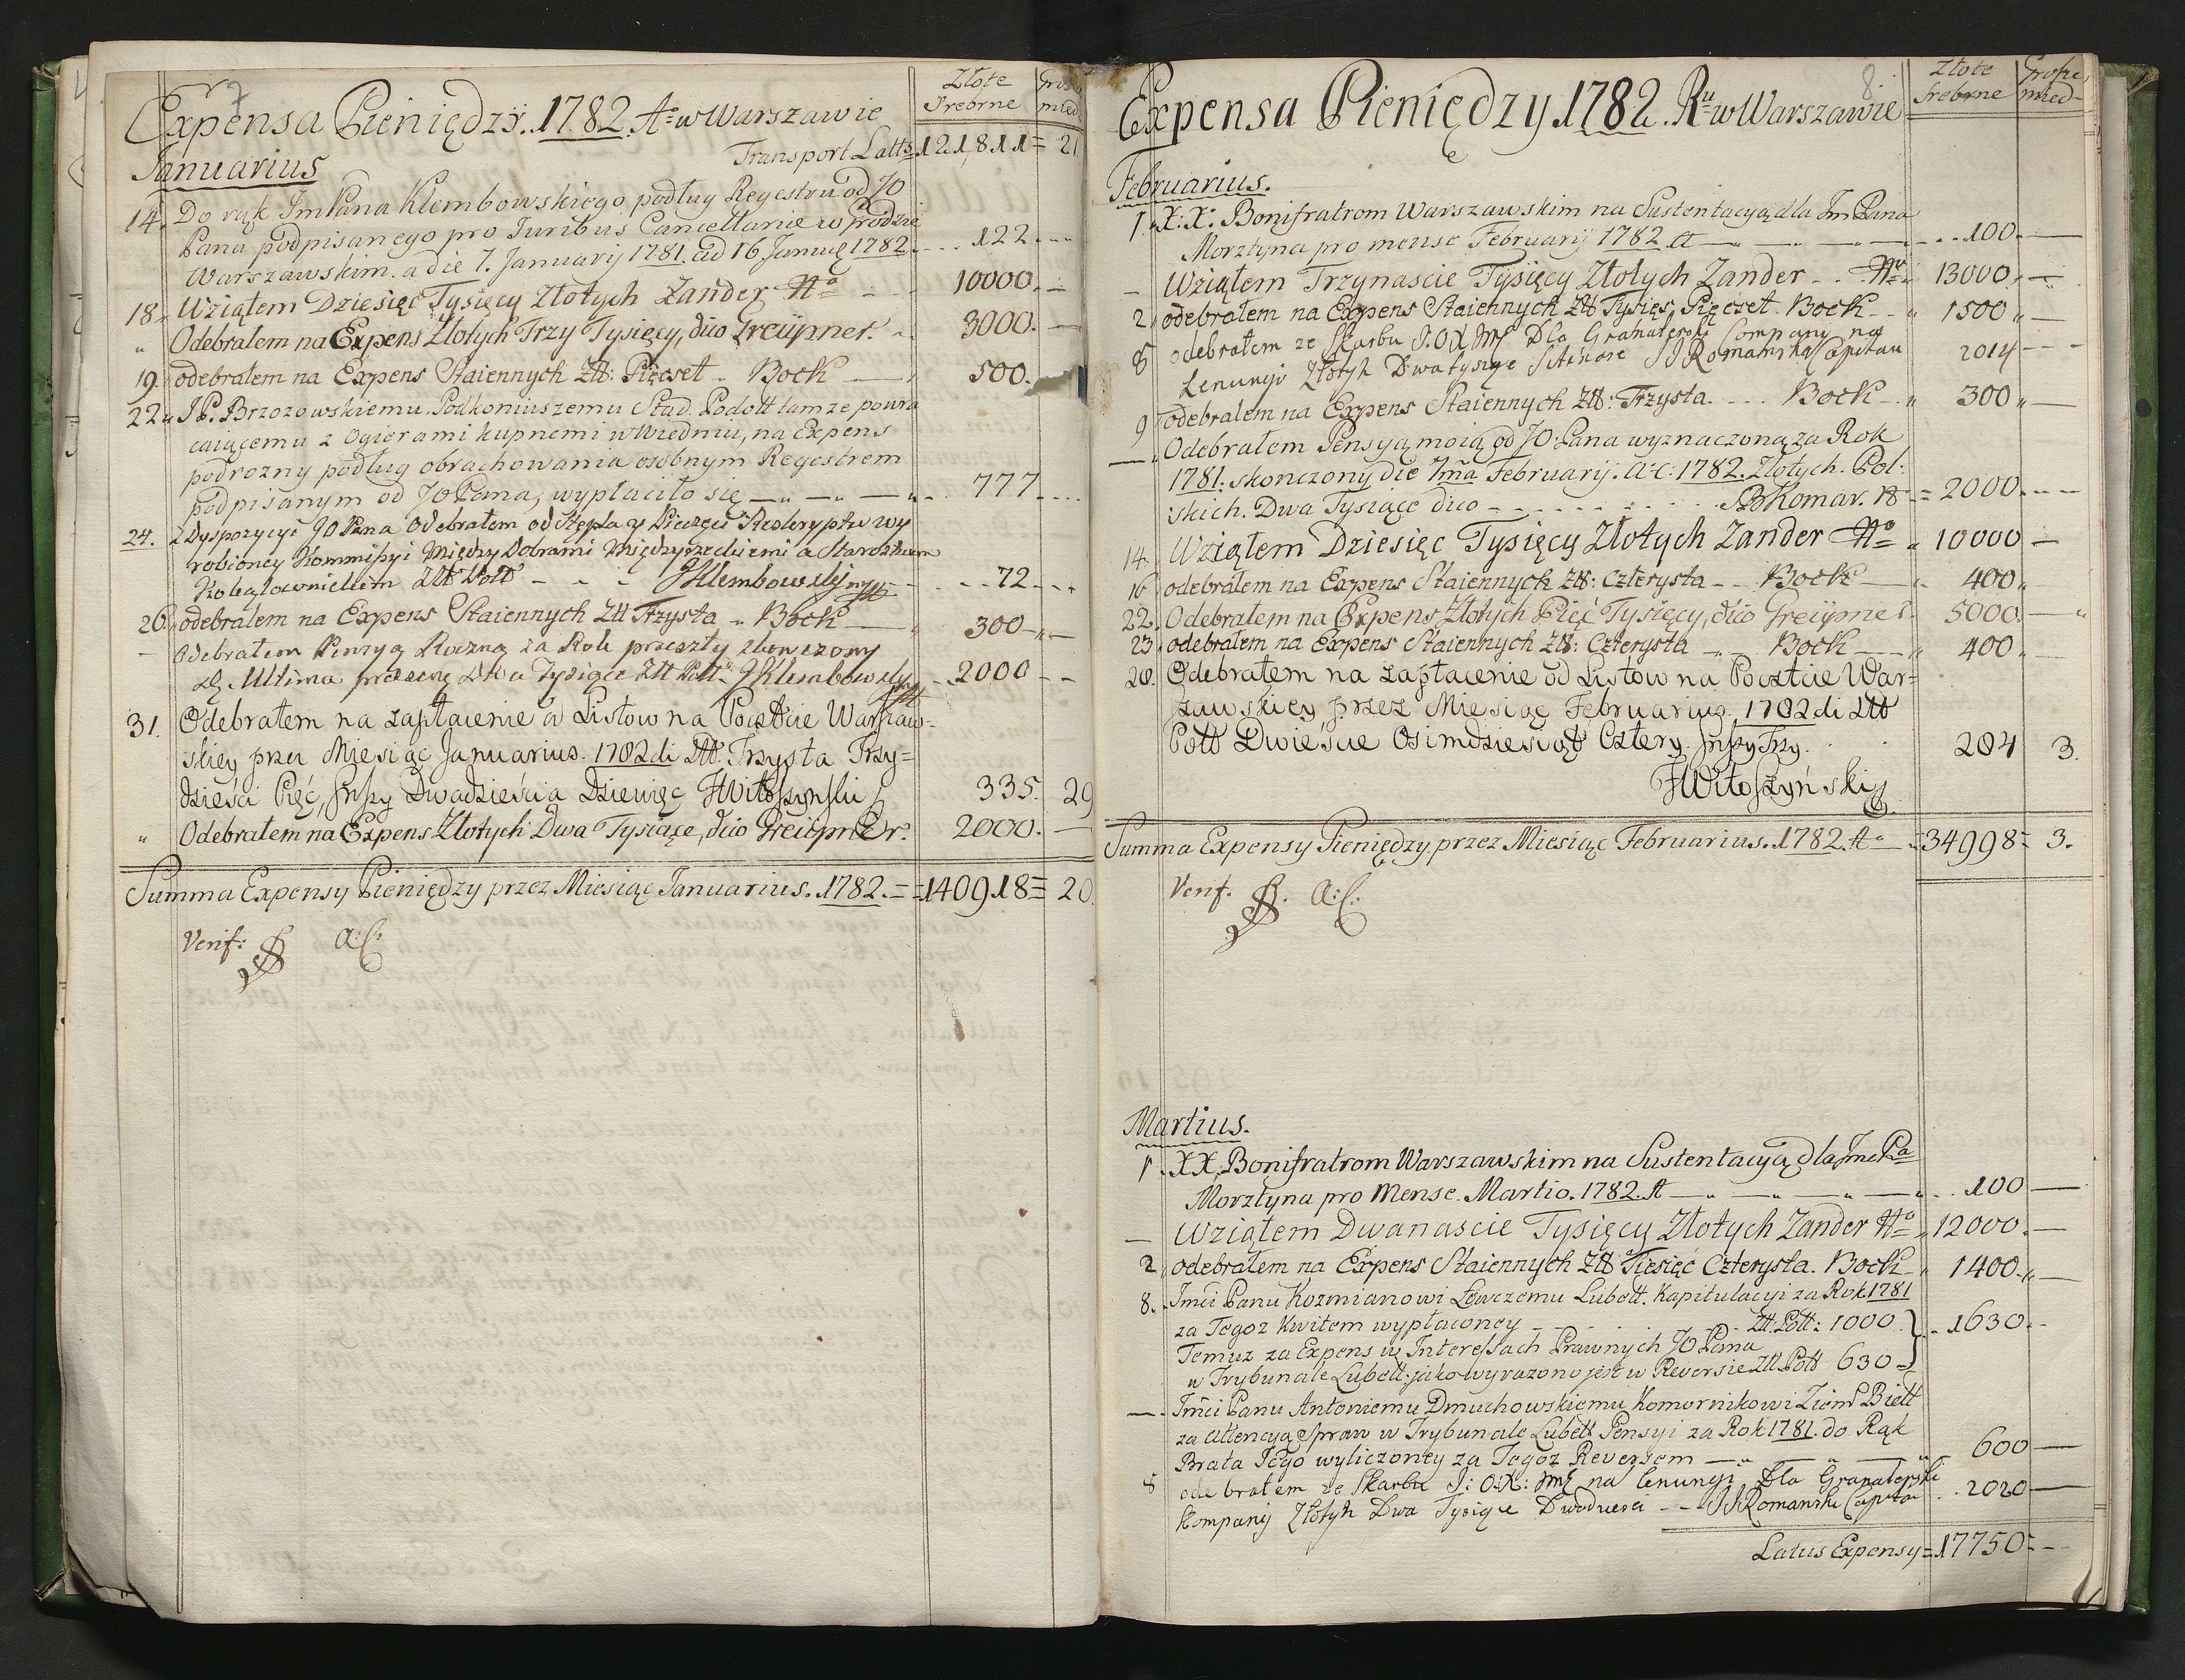 7
Expensa Pieniędzÿ. 1782. Ao w Warszawie
Złote Srebrne
Grosze mied.
Januarius
Transport Latts 121,811= 21
14. Do rąk ImPana Klembowskiego podług Regestru od JO
Pana podpisanego pro Juribus Cancellariæ w Grodzie
Warszawskim. a die 7. Januarij 1781. ad 16 Januar 1782. 122.
18. Wziąłem Dziesięć Tysięcy Złotych Zander 10000.
" Odebrałem na Expens Złotych Trzy Tysięcy, dico Greÿpner. 3000.
19. odebrałem na Expens Staiennych Złł: Pięcset. Bock 500.
22. J P. Brzozowskiemu Podkoniuszemu Stad. Podoll tamze powra
caiącemu z Ogierami kupnemi w Wiedniu, na Expens
podrozny podług obrachowania osobnym Regestrem
podpisanym od JO Pana, wypłaciło się 777.
24. z Dyspozycyi JO Pana Odebrałem od Stępla y Pieczęci Reskryptu wy
robioney Kommissyi między Dobrami Międzyrzeckiemi a Starostwem
Złł Poll J Klembowskj 72.
26. odebrałem na Expens Staiennych Złł Trzysta Bock 300
Odebrałem Pensyą Roczną za Rok przeszły skonczony
Ultima Dwa Tysiące Złł Poll. J Klembowskj 2000
31. Odebrałem na zapłacenie od Listow na Poczcie Warszaw-
skiey przez Miesiąc Januarius. 1782 di Złł. Trzysta Trzy=
dzieści Pięć, groszy Dwadzieścia Dziewięć JWitoszyński 335. 29
" Odebrałem na Expens Złotych Dwa Tysiące, dico Greipner. 2000.
Summa Expensy Pieniędzy przez Miesiąc Januarius. 1782. =140918= 20.
Verif: a:C:
8.
Expensa Pieniędzy 1782. Ru w Warszawie
Złote Srebrne
Grosze mied-
Februarius.
1. X:X: Bonifratrom Warszawskim na Sustentacyą dla Jm Pana
Morztyna pro mense Februarij 1782 100.
Wziąłem Trzynascie Tysięcy Złotych Zander 13000.
2. odebrałem na Expens Staiennych Złł Tysiąc Pięcset. Bock 1500
8 odebrałem ze Skarbu J. O X Mć Dla Granaterski Company na
Lenungi Złotych Dwa tysiące JJRomański Capitan 2014
9 odebrałem na Expens Staiennych Złł: Trzysta. Bock 300
Odebrałem Pensyą moią od JO: Pana wyznaczoną za Rok
1781. skonczony die 1ma Februarij. a:c: 1782. Złotych. Pol:
skich. Dwa Tysiące dico Komar. = 2000.
14. Wziąłem Dziesięc Tysięcy Złotych Zander 10000
16 odebrałem na Expens Staiennych Złł: czterysta Bock 400
22. Odebrałem na Expens Złotych Pięć Tysięcy, dico Greÿpner 5000.
23 odebrałem na Expens Staiennych Złł: Czterysta Bock 400
28. Odebrałem na zapłacenie od Listow na Poczcie War=
szawskiey przez Miesiąc Februarius. 1782 di Złł
Poll Dwieście Osimdziesiąt Cztery. groszy Trzy. 284 3.
JWitoszyński
Summa Expensy Pieniędzy przez Miesiąc Februarius. 1782. Ao =34998= 3.
Verif. a:C:
Martius.
1. XX. Bonifratrom Warszawskim na Sustentacyą dla Jmć Pa
Morztyna pro Mense. Martio. 1782. 100
Wziąłem Dwanascie Tysięcy Złotych Zander 12000.
2 odebrałem na Expens Staiennych Złł Tysiąc Czterysta. Bock 1400.
8. Jmci Panu Kozmianowi Łowczemu Lubell. Kapitulacyi za Rok 1781
za Tegoz Kwitem wypłaconey Złł. Poll: 1000
Temuz za Expens w Interessach Prawnych JO Pana
w Trybunale Lubell: jako wyrazono jest w Reversie Złł Poll 630 } 1630.
Jmci Panu Antoniemu Dmuchowskiemu Komornikowi Ziem Biell
za attencyą Spraw w Trybunale Lubell Pensyi za Rok 1781. do Rąk
Brata Jego wyliczoney za Tegoz Reversem 600
8 odebrałem ze Skarbu J: O:X: Mć na lenungi Dla Granaterski
Kompanij Złotych Dwa Tysiące Dwadziescia JJRomański Capitan 2020
Latus Expensy =17750=